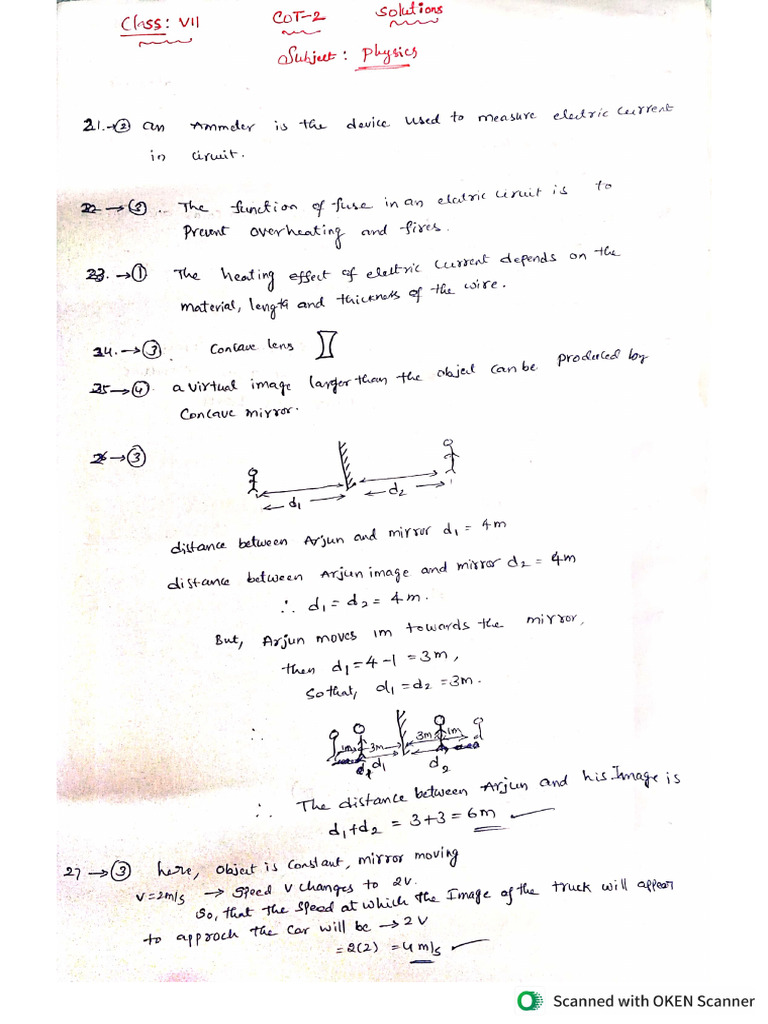 Class: VII COT-2 Solutions
Subject: Physics
21.→② an Ammeter is the device used to measure electric current
in circuit.
22 → ② The function of fuse in an elctric circuit is to
Prevent overheating and fires.
23.→① The heating effect of electric current depends on the
material, length and thickness of the wire.
24.→③. Concave lens
25→④ a virtual image larger than the object can be produced by
Concave mirror.
26→③
d₁ d₂
distance between Arjun and mirror d₁ = 4m
distance between Arjun image and mirror d₂ = 4m
∴ d₁ = d₂ = 4m.
But, Arjun moves 1m towards the mirror,
then d₁ = 4-1 = 3m,
So that, d₁ = d₂ = 3m.
∴ 1m 3m 3m 1m
d₁ d₂
∴ The distance between Arjun and his Image is
d₁+d₂ = 3+3 = 6m
27→③ here, object is constant, mirror moving
V=2m/s → speed V changes to 2V.
So, that the speed at which the Image of the truck will appear
to approch the car will be → 2V
= 2(2) = 4m/s
Scanned with OKEN Scanner